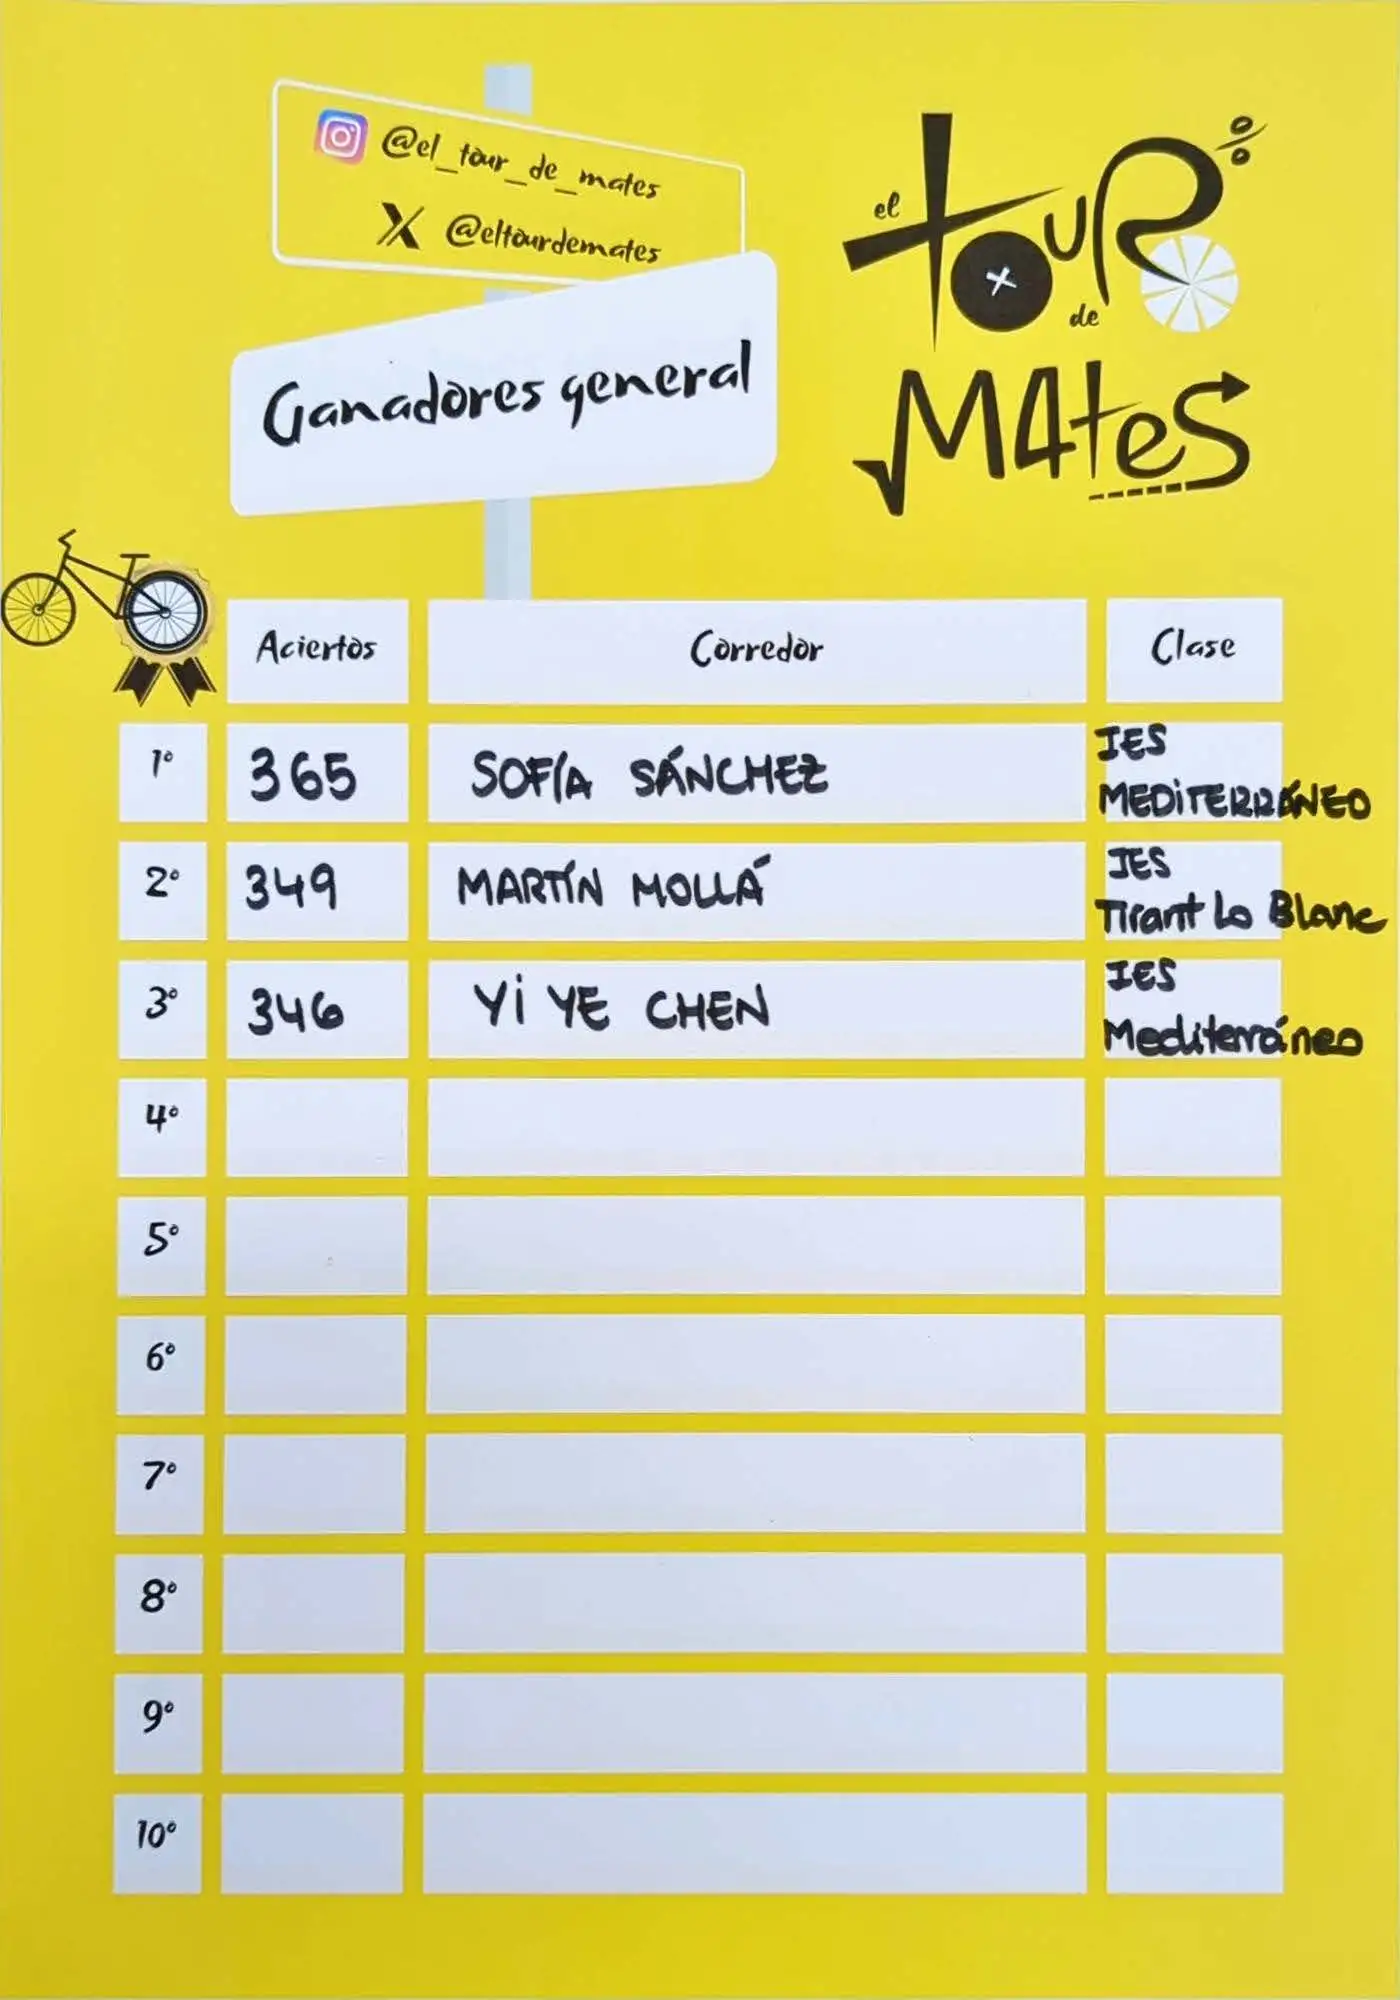 @el_tour_de_mates
@eltourdemates
Ganadores general
el
touR
de
M4teS
Aciertos Corredor Clase
1º 365 SOFÍA SÁNCHEZ IES
MEDITERRÁNEO
2º 349 MARTÍN MOLLÁ IES
Tirant Lo Blanc
3º 346 Yi YE CHEN IES
Mediterráneo
4º
5º
6º
7º
8º
9º
10º